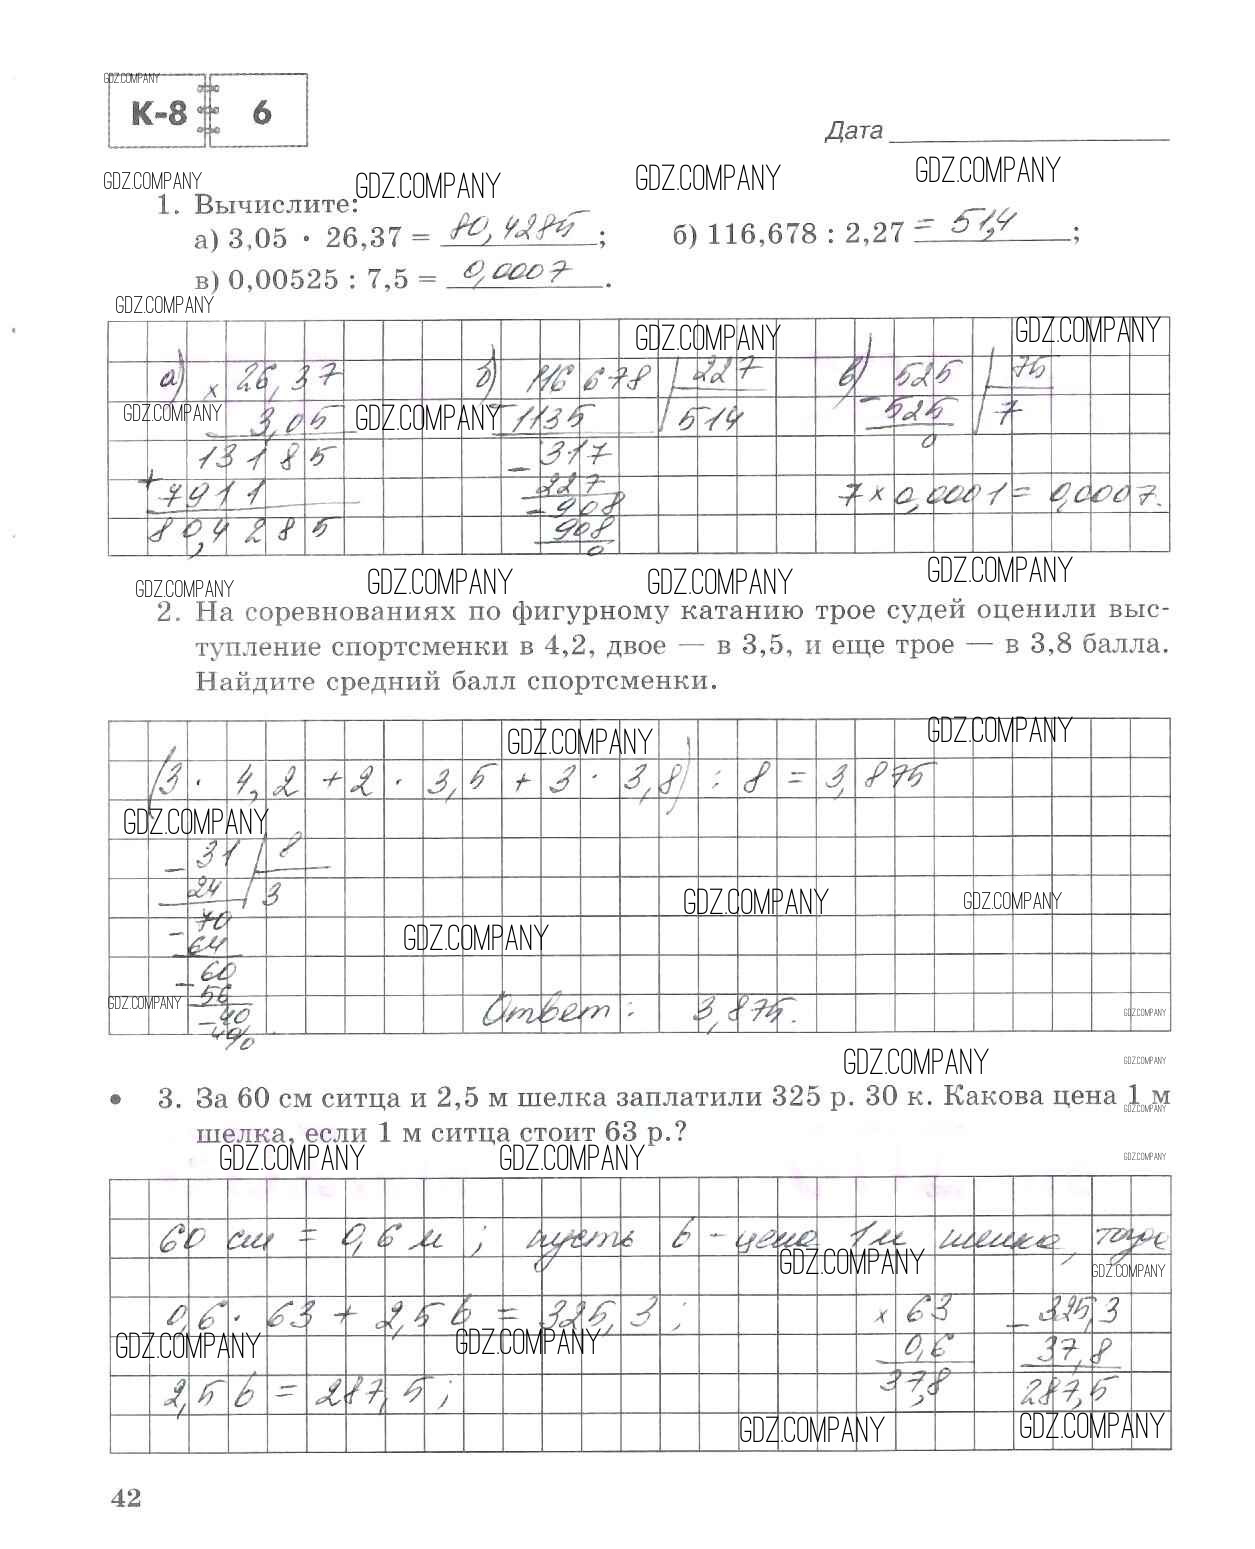 GDZ.COMPANY
К-8 6
Дата
GDZ.COMPANY GDZ.COMPANY GDZ.COMPANY GDZ.COMPANY
1. Вычислите:
а) 3,05 · 26,37 = 80,4285 ; б) 116,678 : 2,27 = 51,4 ;
в) 0,00525 : 7,5 = 0,0007 .
GDZ.COMPANY
GDZ.COMPANY GDZ.COMPANY
а) × 26,37 б) 116678 227 в) 525 75
GDZ.COMPANY 3,05 GDZ.COMPANY 1135 514 - 525 7
13185 - 317 0
+ 7911 227 7 × 0,0001 = 0,0007.
80,4285 - 908
908
0
GDZ.COMPANY GDZ.COMPANY GDZ.COMPANY GDZ.COMPANY
2. На соревнованиях по фигурному катанию трое судей оценили выс-
тупление спортсменки в 4,2, двое — в 3,5, и еще трое — в 3,8 балла.
Найдите средний балл спортсменки.
GDZ.COMPANY GDZ.COMPANY
(3 · 4,2 + 2 · 3,5 + 3 · 3,8) : 8 = 3,875
GDZ.COMPANY
- 31 8
24 3
GDZ.COMPANY GDZ.COMPANY
70
- 64 GDZ.COMPANY
- 60
GDZ.COMPANY 56 Ответ: 3,875. GDZ.COMPANY
- 40
40
0
GDZ.COMPANY GDZ.COMPANY
• 3. За 60 см ситца и 2,5 м шелка заплатили 325 р. 30 к. Какова цена 1 м
GDZ.COMPANY
шелка, если 1 м ситца стоит 63 р.?
GDZ.COMPANY GDZ.COMPANY GDZ.COMPANY
60 см = 0,6 м ; пусть b - цена 1м шелка, тогда
GDZ.COMPANY GDZ.COMPANY
0,6 · 63 + 2,5 b = 325,3 ; × 63 - 325,3
GDZ.COMPANY GDZ.COMPANY 0,6 37,8
2,5 b = 287,5 ; 37,8 287,5
GDZ.COMPANY GDZ.COMPANY
42